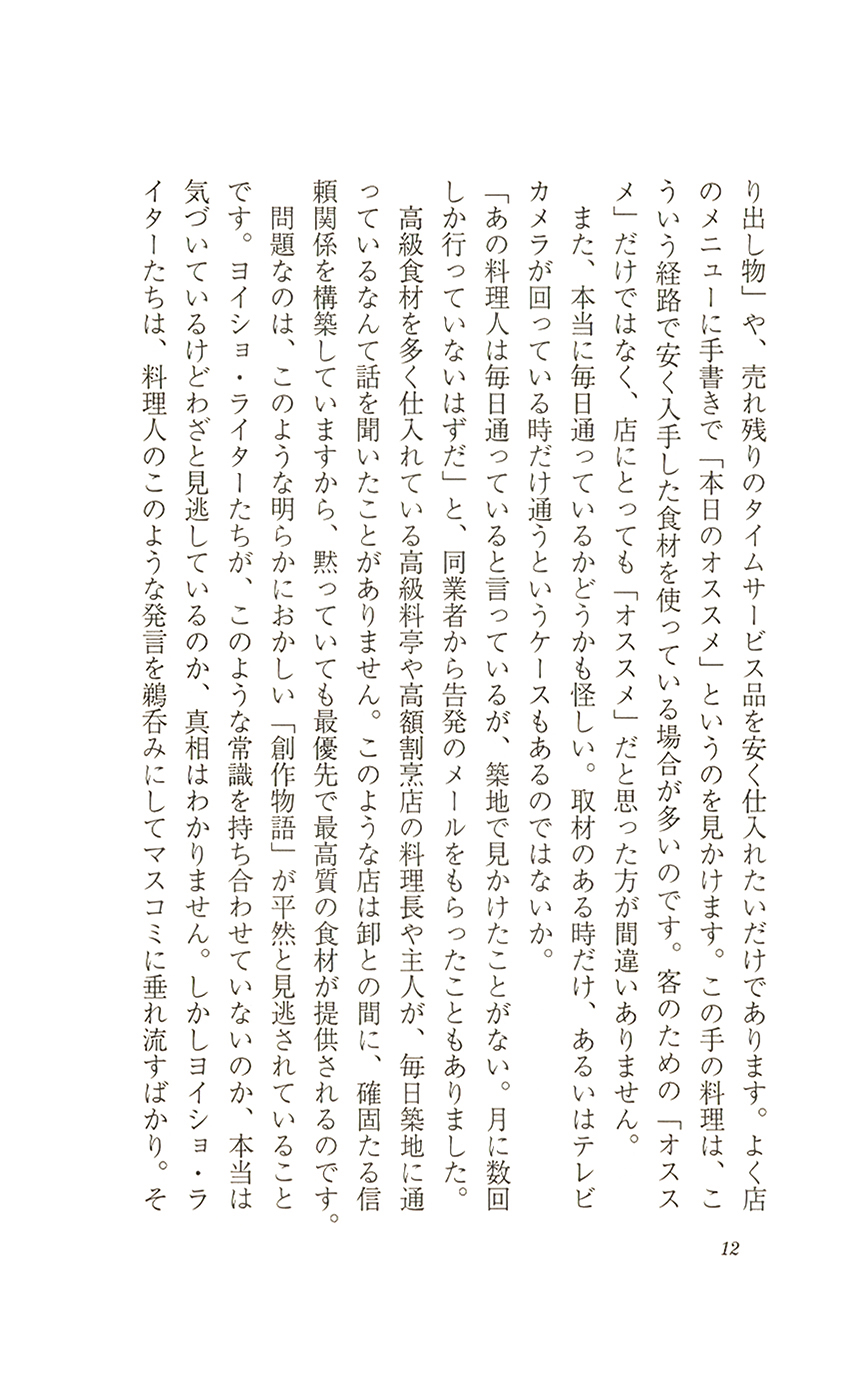 り出し物」や、売れ残りのタイムサービス品を安く仕入れたいだけであります。よく店
のメニューに手書きで「本日のオススメ」というのを見かけます。この手の料理は、こ
ういう経路で安く入手した食材を使っている場合が多いのです。客のための「オスス
メ」だけではなく、店にとっても「オススメ」だと思った方が間違いありません。
また、本当に毎日通っているかどうかも怪しい。取材のある時だけ、あるいはテレビ
カメラが回っている時だけ通うというケースもあるのではないか。
「あの料理人は毎日通っていると言っているが、築地で見かけたことがない。月に数回
しか行っていないはずだ」と、同業者から告発のメールをもらったこともありました。
高級食材を多く仕入れている高級料亭や高額割烹店の料理長や主人が、毎日築地に通
っているなんて話を聞いたことがありません。このような店は卸との間に、確固たる信
頼関係を構築していますから、黙っていても最優先で最高質の食材が提供されるのです。
問題なのは、このような明らかにおかしい「創作物語」が平然と見逃されていること
です。ヨイショ・ライターたちが、このような常識を持ち合わせていないのか、本当は
気づいているけどわざと見逃しているのか、真相はわかりません。しかしヨイショ・ラ
イターたちは、料理人のこのような発言を鵜呑みにしてマスコミに垂れ流すばかり。そ
12